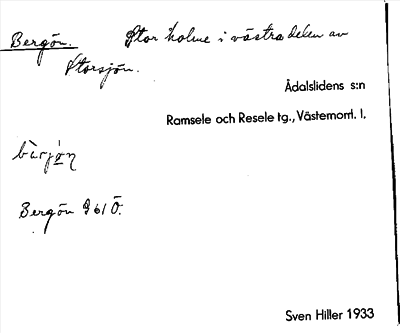 Bergön. Stor holme i västra delen av
Storsjön.
Ådalslidens s:n
Ramsele och Resele tg., Västernorrl. l.
bærjön
Bergön 961 Ö.
Sven Hiller 1933